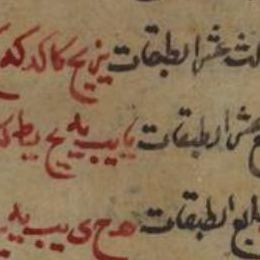 لث عشر الطبقات يز يح كا كد كه
ع عشر الطبقات يا يب يه يح يط ك
ابع الطبقات ه ح ى يب يه